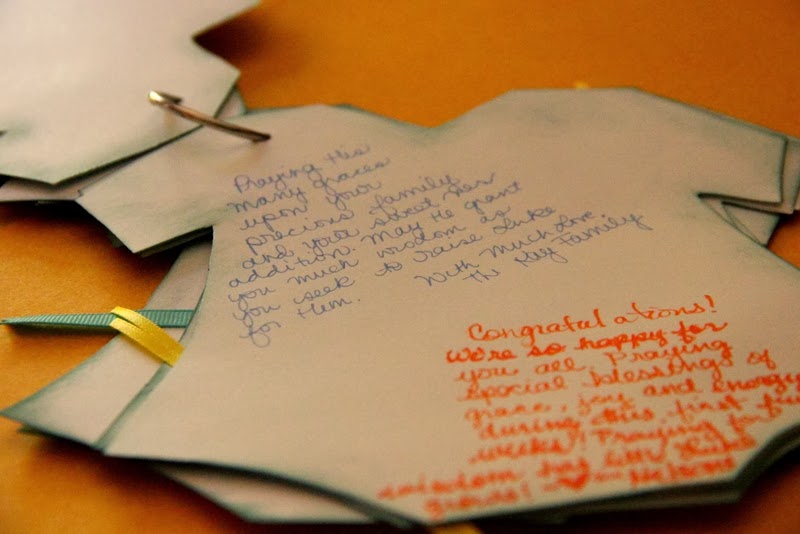 Praying His
many graces
upon your
precious family
and your sweet new
addition. May He grant
you much wisdom as
you seek to raise Luke
for Him.
With much love,
The Key Family
Congratulations!
We're so happy for
you all. Praying
special blessings of
grace, joy, and energy
during this first few
weeks! Praying for
wisdom as little Luke
grows! ♥ - Nelsons